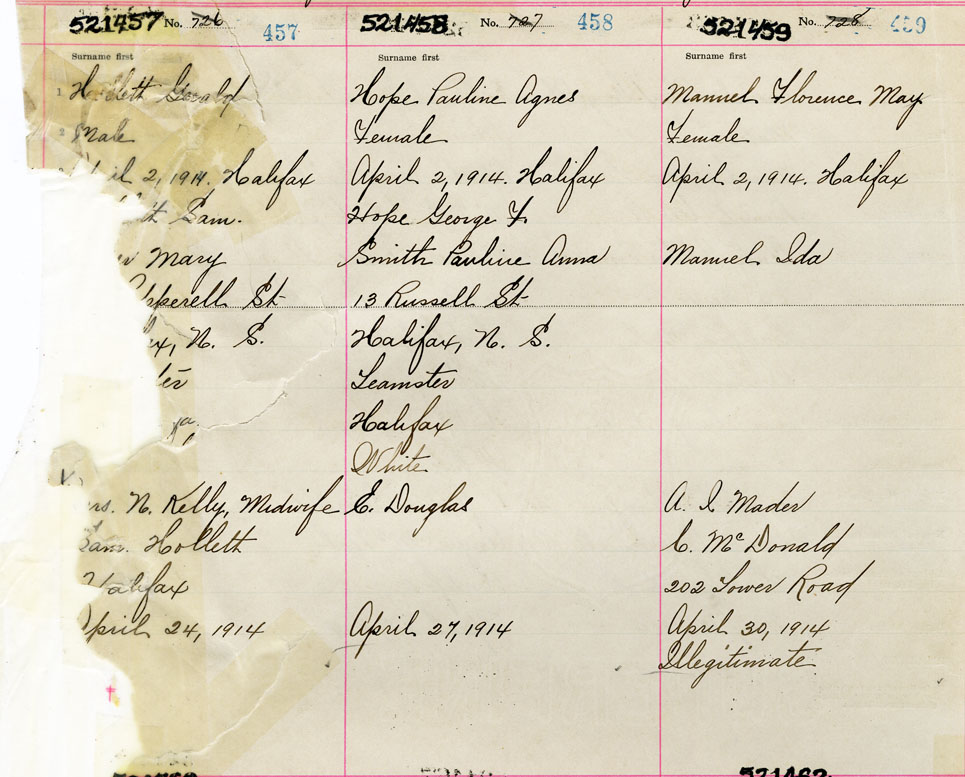 521457 No. 726 457
Surname first
1. Hollett Gerald
2 Male
April 2, 1914. Halifax
Sam.
Mary
St
N. S.
Mrs. N. Kelly, Midwife
Sam. Hollett
Halifax
April 24, 1914
521458 No. 727 458
Surname first
Hope Pauline Agnes
Female
April 2, 1914. Halifax
Hope George F.
Smith Pauline Anna
13 Russell St
Halifax, N. S.
Teamster
Halifax
White
E. Douglas
April 27, 1914
521459 No. 728 459
Surname first
Manuel Florence May
Female
April 2, 1914. Halifax
Manuel Ida
A. I. Mader
C. McDonald
202 Tower Road
April 30, 1914
Illegitimate
521462